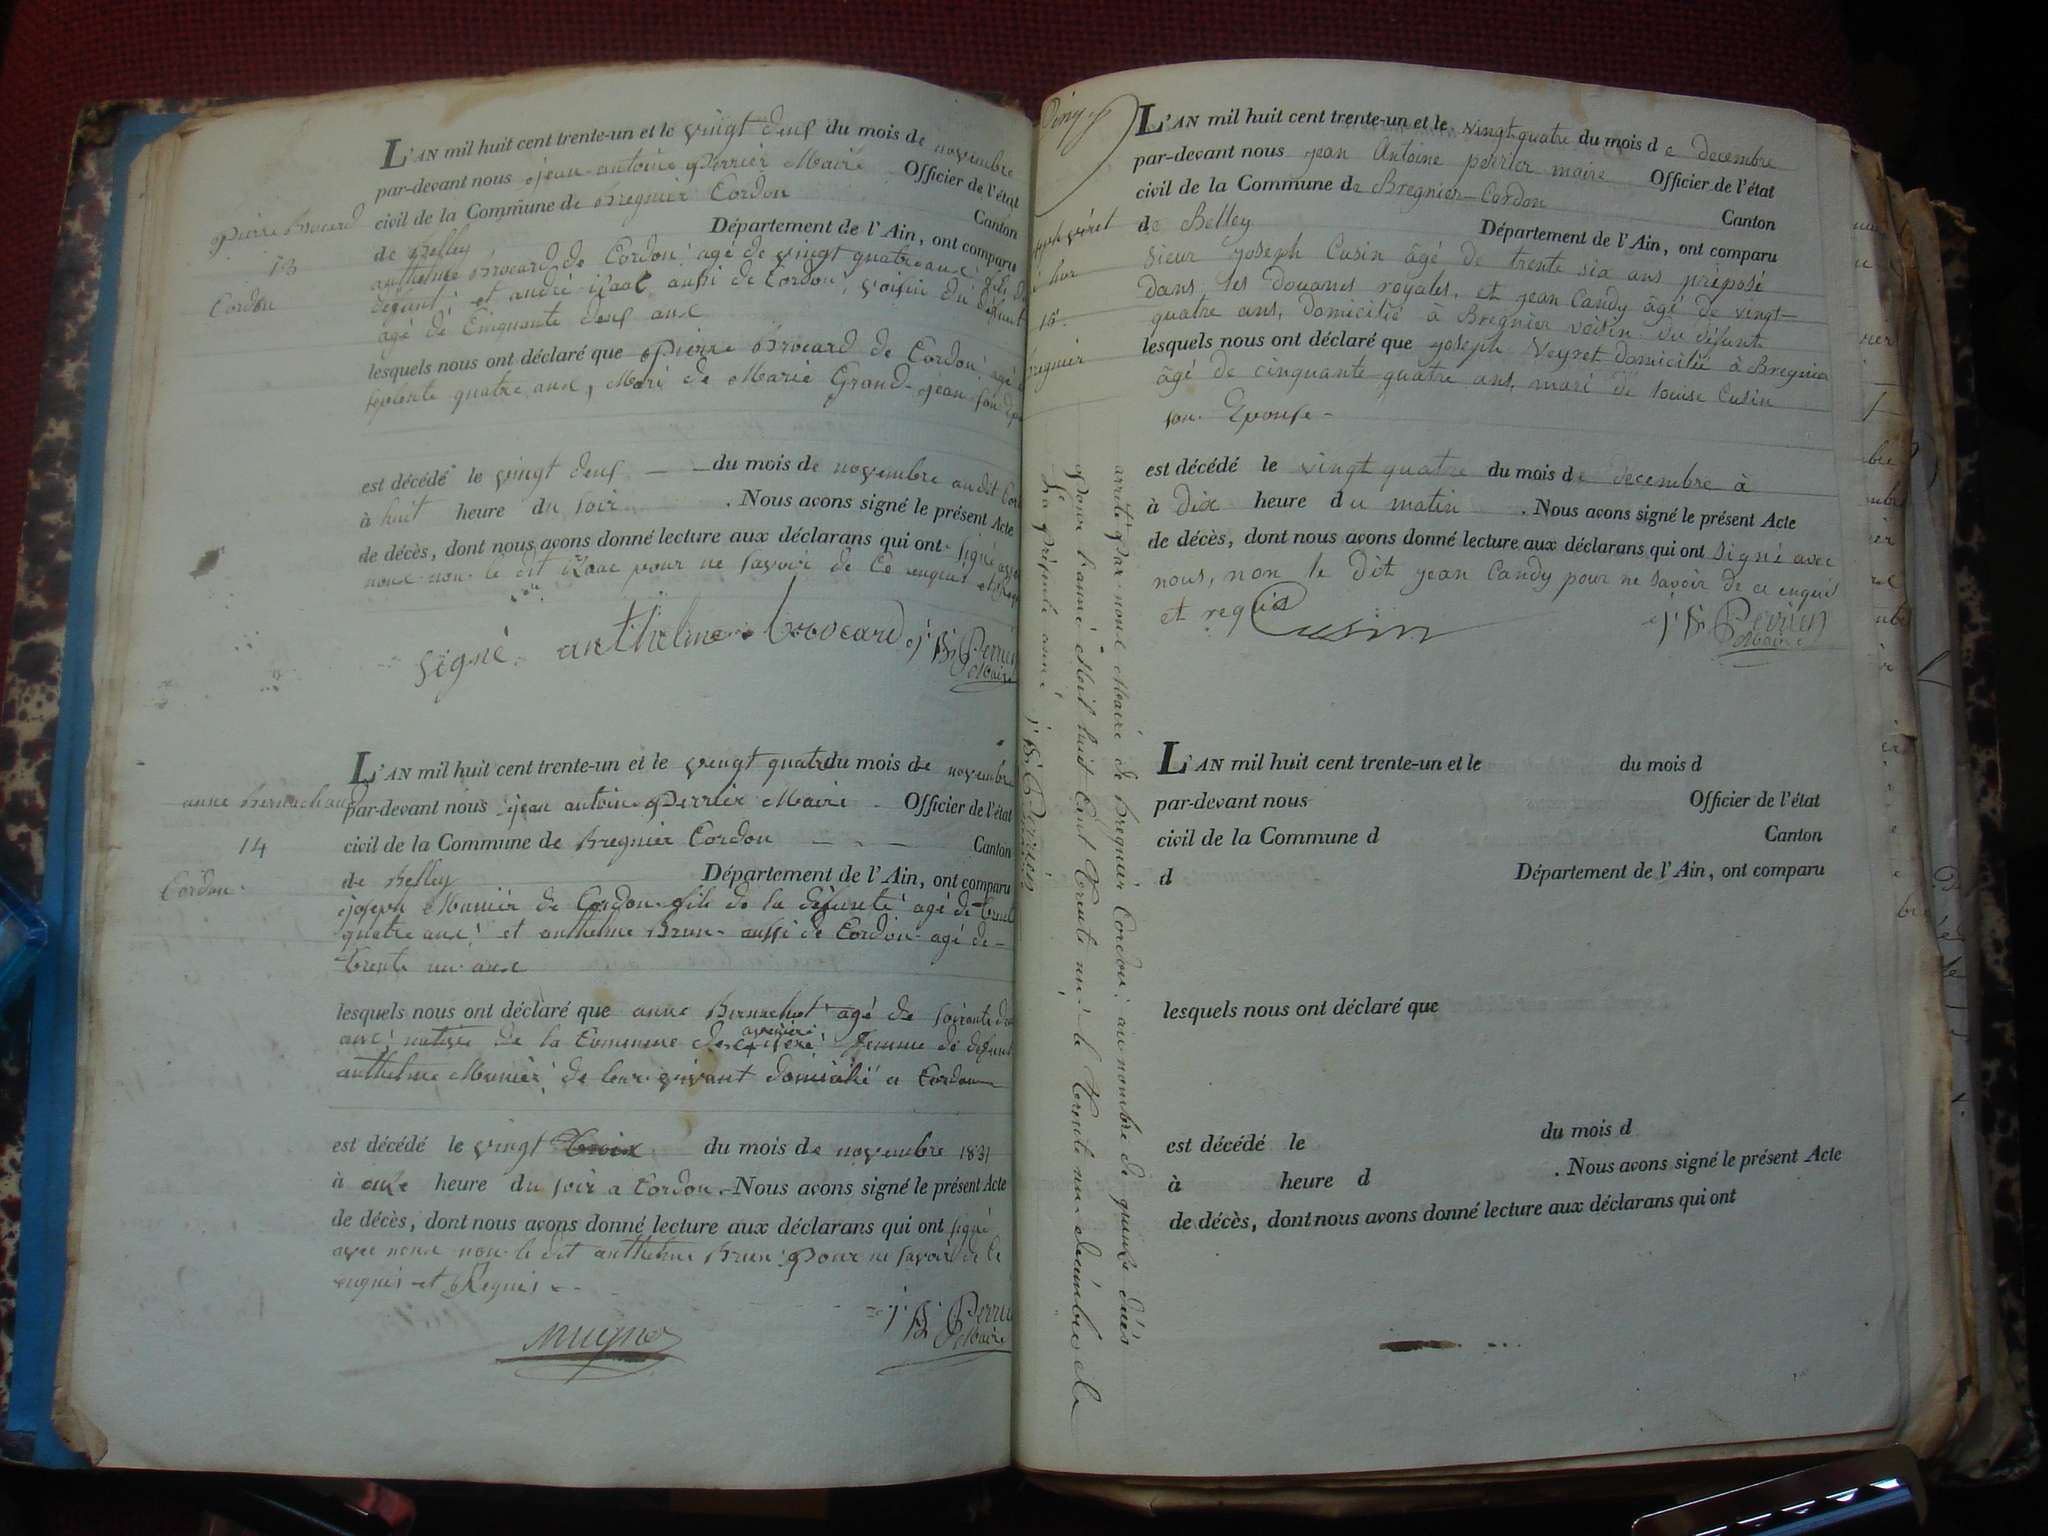 Pierre Brocard
13
Cordon
L'AN mil huit cent trente-un et le vingt deux du mois de novembre
par-devant nous jean antoine Perrier Maire Officier de l'état
civil de la Commune de Bregnier Cordon Canton
de Belley Département de l'Ain, ont comparu
anthelme Brocard de Cordon agé de vingt quatre ans fils du
défunt et andré izaac aussi de Cordon, voisin du défunt
agé de Cinquante deux ans
lesquels nous ont déclaré que Pierre Brocard de Cordon agé
septente quatre ans, Mari de Marie Grand-jean son
est décédé le vingt deux du mois de novembre au dit
à huit heure du soir . Nous avons signé le présent Acte
de décès, dont nous avons donné lecture aux déclarans qui ont signé avec
nous non le dit izaac pour ne savoir de ce enquis et
signé anthelme brocard j. A. Perrier
Maire
anne Bernachaud
14
Cordon
L'AN mil huit cent trente-un et le vingt quatre du mois de novembre
par-devant nous jean antoine Perrier Maire Officier de l'état
civil de la Commune de Bregnier Cordon Canton
de Belley Département de l'Ain, ont comparu
joseph Munier de Cordon fils de la défunte agé de trente
quatre ans et anthelme Brun aussi de Cordon agé de
trente un ans
lesquels nous ont déclaré que anne Bernachot agé de soixante
ans native de la Commune femme de defunt
anthelme Munier de leur vivant domicilié a Cordon
est décédé le vingt trois du mois de novembre 1831
à onze heure du soir a Cordon . Nous avons signé le présent Acte
de décès, dont nous avons donné lecture aux déclarans qui ont signé
avec nous non le dit anthelme Brun pour ne savoir de ce
enquis et Requis
j. A. Perrier
Maire
15
Bregnier
L'AN mil huit cent trente-un et le vingt quatre du mois de decembre
par-devant nous jean Antoine perrier maire Officier de l'état
civil de la Commune de Bregnier-Cordon Canton
de Belley Département de l'Ain, ont comparu
sieur joseph Cusin âgé de trente six ans préposé
dans les Douanes royales, et jean Candy âgé de vingt
quatre ans, Domicilié à Bregnier voisin du défunt
lesquels nous ont déclaré que joseph Veyret domicilié à Bregnier
âgé de cinquante quatre ans, mari de louise Cusin
son Epouse
est décédé le vingt quatre du mois de decembre à
à dix heure du matin . Nous avons signé le présent Acte
de décès, dont nous avons donné lecture aux déclarans qui ont signé avec
nous, non le dit jean Candy pour ne savoir de ce enquis
et requis
Cusin j. A. Perrier
Maire
arrêté par nous Maire de Bregnier Cordon, au nombre de quinze décès
Pour l'année Mil huit Cent Trente un le trente un décembre de
la présente année j. A. Perrier
L'AN mil huit cent trente-un et le du mois d
par-devant nous Officier de l'état
civil de la Commune d Canton
d Département de l'Ain, ont comparu
lesquels nous ont déclaré que
est décédé le du mois d
à heure d . Nous avons signé le présent Acte
de décès, dont nous avons donné lecture aux déclarans qui ont